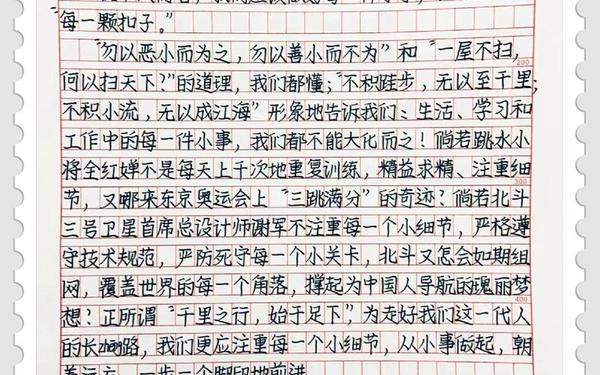 每一颗扣子。”
“勿以恶小而为之，勿以善小而不为”和“一屋不扫，
何以扫天下？”的道理，我们都懂；“不积跬步，无以至千里；
不积小流，无以成江海”形象地告诉我们：生活、学习和
工作中的每一件小事，我们都不能大化而之！倘若跳水小
将全红婵不是每天上千次地重复训练，精益求精、注重细
节，又哪来东京奥运会上“三跳满分”的奇迹？倘若北斗
三号卫星首席总设计师谢军不注重每一个小细节，严格遵
守技术规范，严防死守每一个小关卡，北斗又怎会如期组
网，覆盖世界的每一个角落，撑起为中国人导航的瑰丽梦
想？正所谓“千里之行，始于足下”，为走好我们这一代人
的长zheng路，我们更应注重每一个小细节，从小事做起，朝
着远方，一步一个脚印地前进
200
300
400